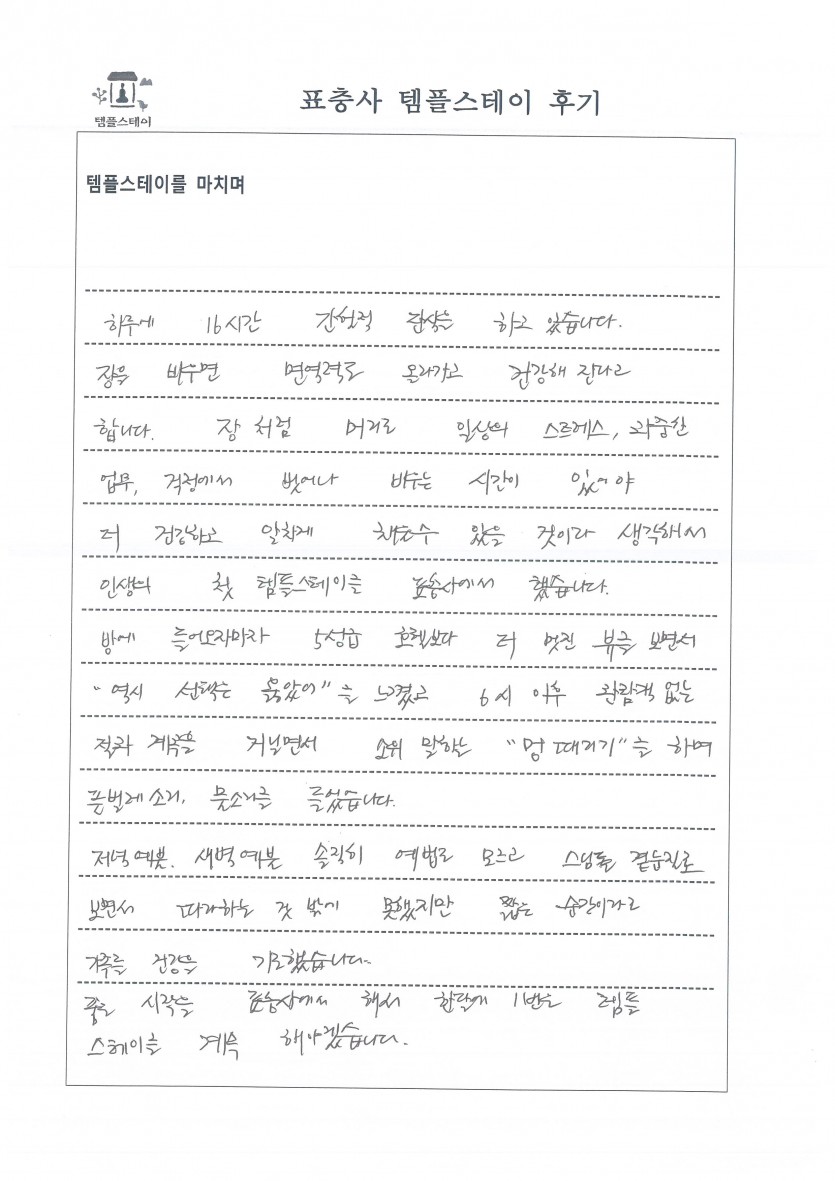 템플스테이
표충사 템플스테이 후기
템플스테이를 마치며
하루에 16시간 간헐적 단식을 하고 있습니다.
장을 비우면 면역력도 올라가고 건강해 진다고
합니다. 장 처럼 머리도 일상의 스트레스, 과중한
업무, 걱정에서 벗어나 비우는 시간이 있어야
더 건강하고 알차게 채울수 있을 것이라 생각해서
인생의 첫 템플스테이를 표충사에서 했습니다.
방에 들어오자마자 5성급 호텔보다 더 멋진 뷰를 보면서
"역시 선택은 옳았어"를 느꼈고 6시 이후 관람객 없는
절과 계곡을 거닐면서 소위 말하는 "멍 때리기"를 하며
풀벌레 소리, 물소리를 들었습니다.
저녁예불, 새벽예불 솔직히 예법도 모르고 스님을 곁눈질로
보면서 따라하는 것 밖에 못했지만 짧은 순간이라도
가족들 건강을 기도했습니다.
좋은 시작을 표충사에서 해서 한달에 1번은 템플
스테이를 계속 해야겠습니다.